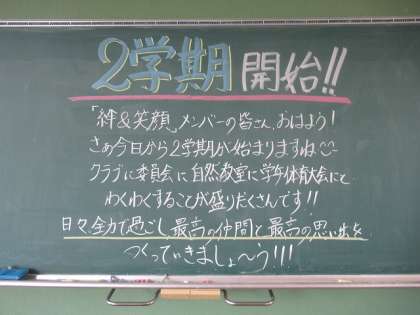 2学期開始!!
「絆&笑顔」メンバーの皆さん、おはよう!
さぁ今日から2学期が始まりますね
クラブに委員会に自然教室に学年体育大会にと
わくわくすることが盛りだくさんです!!
日々全力で過ごし最高の仲間と最高の思い出を
つくっていきましょ〜う!!!